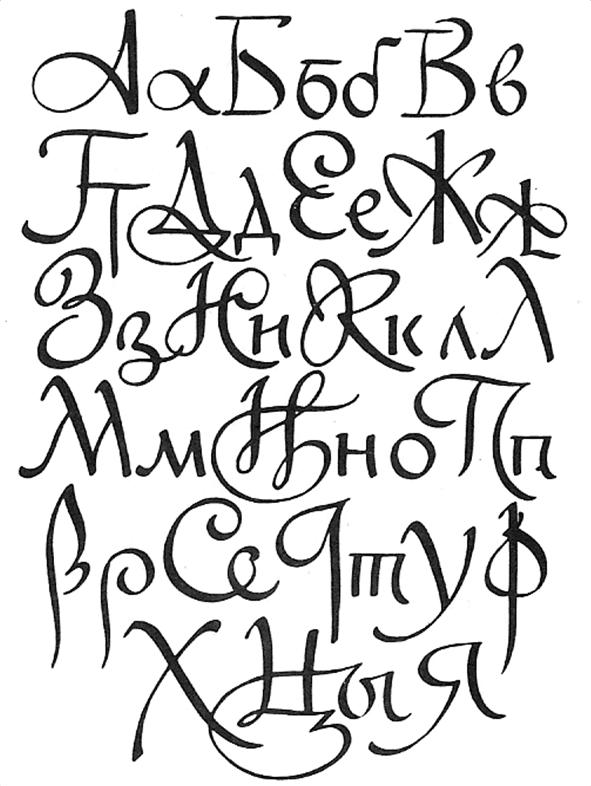 А а Б б б В в
Г т Д д Е е Ж ж
З з Н н К к л Л
М м Н н о П п
Р р С с Ч т у ф
Х Ц ы Я